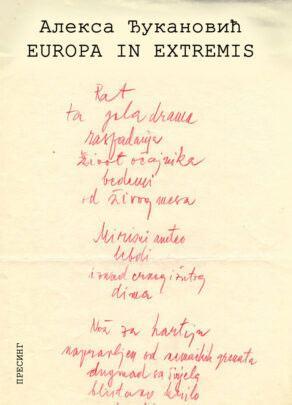 Алекса Ђукановић
EUROPA IN EXTREMIS
Rat
ta gola drama
raspadanja
život očajnika
bedemi
od živog mesa
Mirisni
lebdi
iznad crnog i žutog
dima
Nož za hartiju
napravljen od nemačkih granata
dugmad sa šinjela
blistavo krilo
ПРЕСИНГ